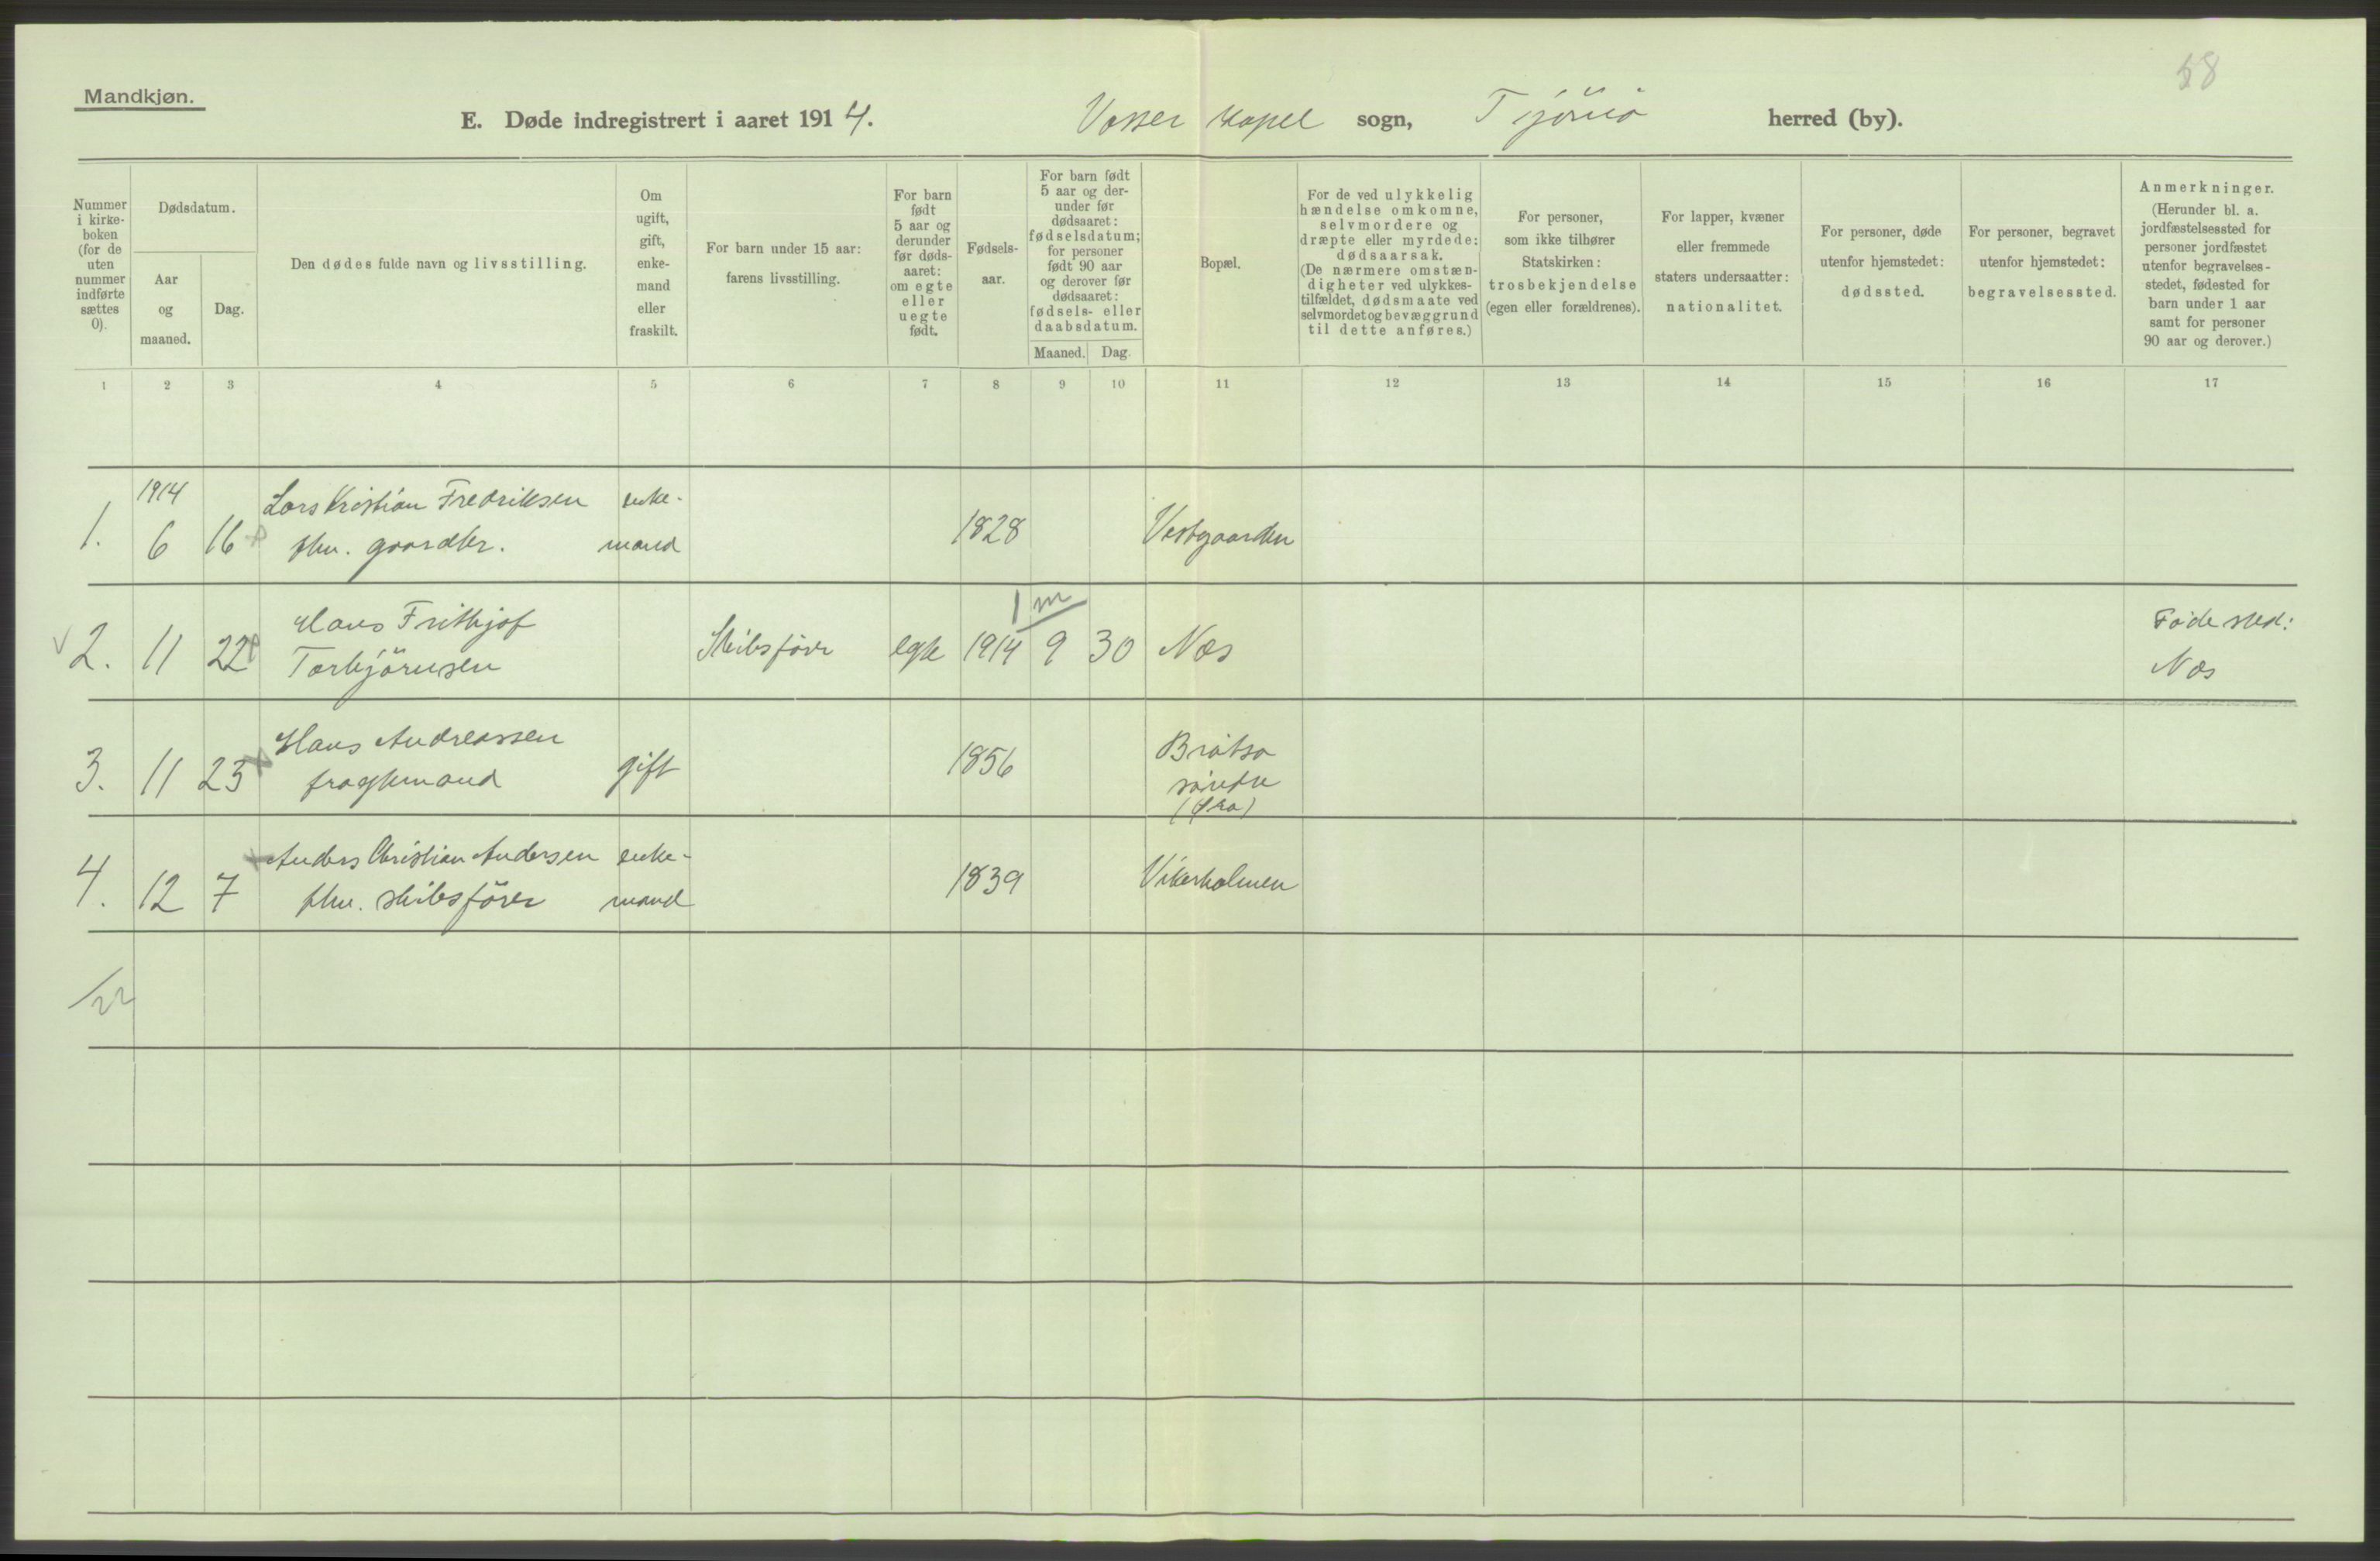 58
Mandkjøn.
E. Døde indregistrert i aaret 1914. Vasser kapel sogn, Tjömö herred (by).
Nummer i kirke-boken (for de uten nummer indførte sættes 0).
Dødsdatum.
Aar og maaned.
Dag.
Den dødes fulde navn og livsstilling.
Om ugift, gift, enke-mand eller fraskilt.
For barn under 15 aar: farens livsstilling.
For barn født 5 aar og derunder før døds-aaret: om egte eller uegte født.
Fødsels-aar.
For barn født 5 aar og der-under før dødsaaret: fødselsdatum; for personer født 90 aar og derover før dødsaaret: fødsels- eller daabsdatum.
Maaned. Dag.
Bopæl.
For de ved ulykkelig hændelse omkomne, selvmordere og dræpte eller myrdede: dødsaarsak. (De nærmere omstæn-digheter ved ulykkes-tilfældet, dødsmaate ved selvmordet og bevæggrund til dette anføres.)
For personer, som ikke tilhører Statskirken: trosbekjendelse (egen eller forældrenes).
For lapper, kvæner eller fremmede staters undersaatter: nationalitet.
For personer, døde utenfor hjemstedet: dødssted.
For personer, begravet utenfor hjemstedet: begravelsessted.
Anmerkninger. (Herunder bl. a. jordfæstelsessted for personer jordfæstet utenfor begravelses-stedet, fødested for barn under 1 aar samt for personer 90 aar og derover.)
1 2 3 4 5 6 7 8 9 10 11 12 13 14 15 16 17
1914
Lars Kristian Fredriksen enke-
1. 6 16 fhv. gaardbr. mand 1828 Vestgaarden
1 m
Hans Frithjof Födested:
2. 11 22 Torbjörnsen Skibsförer egte 1914 9 30 Næs Næs
Hans Andreassen Bråtsø
3. 11 23 fragtemand gift 1856 söndre
Anders Christian Andersen enke-
4. 12 7 fhv. skibsförer mand 1839 Vikerholmen